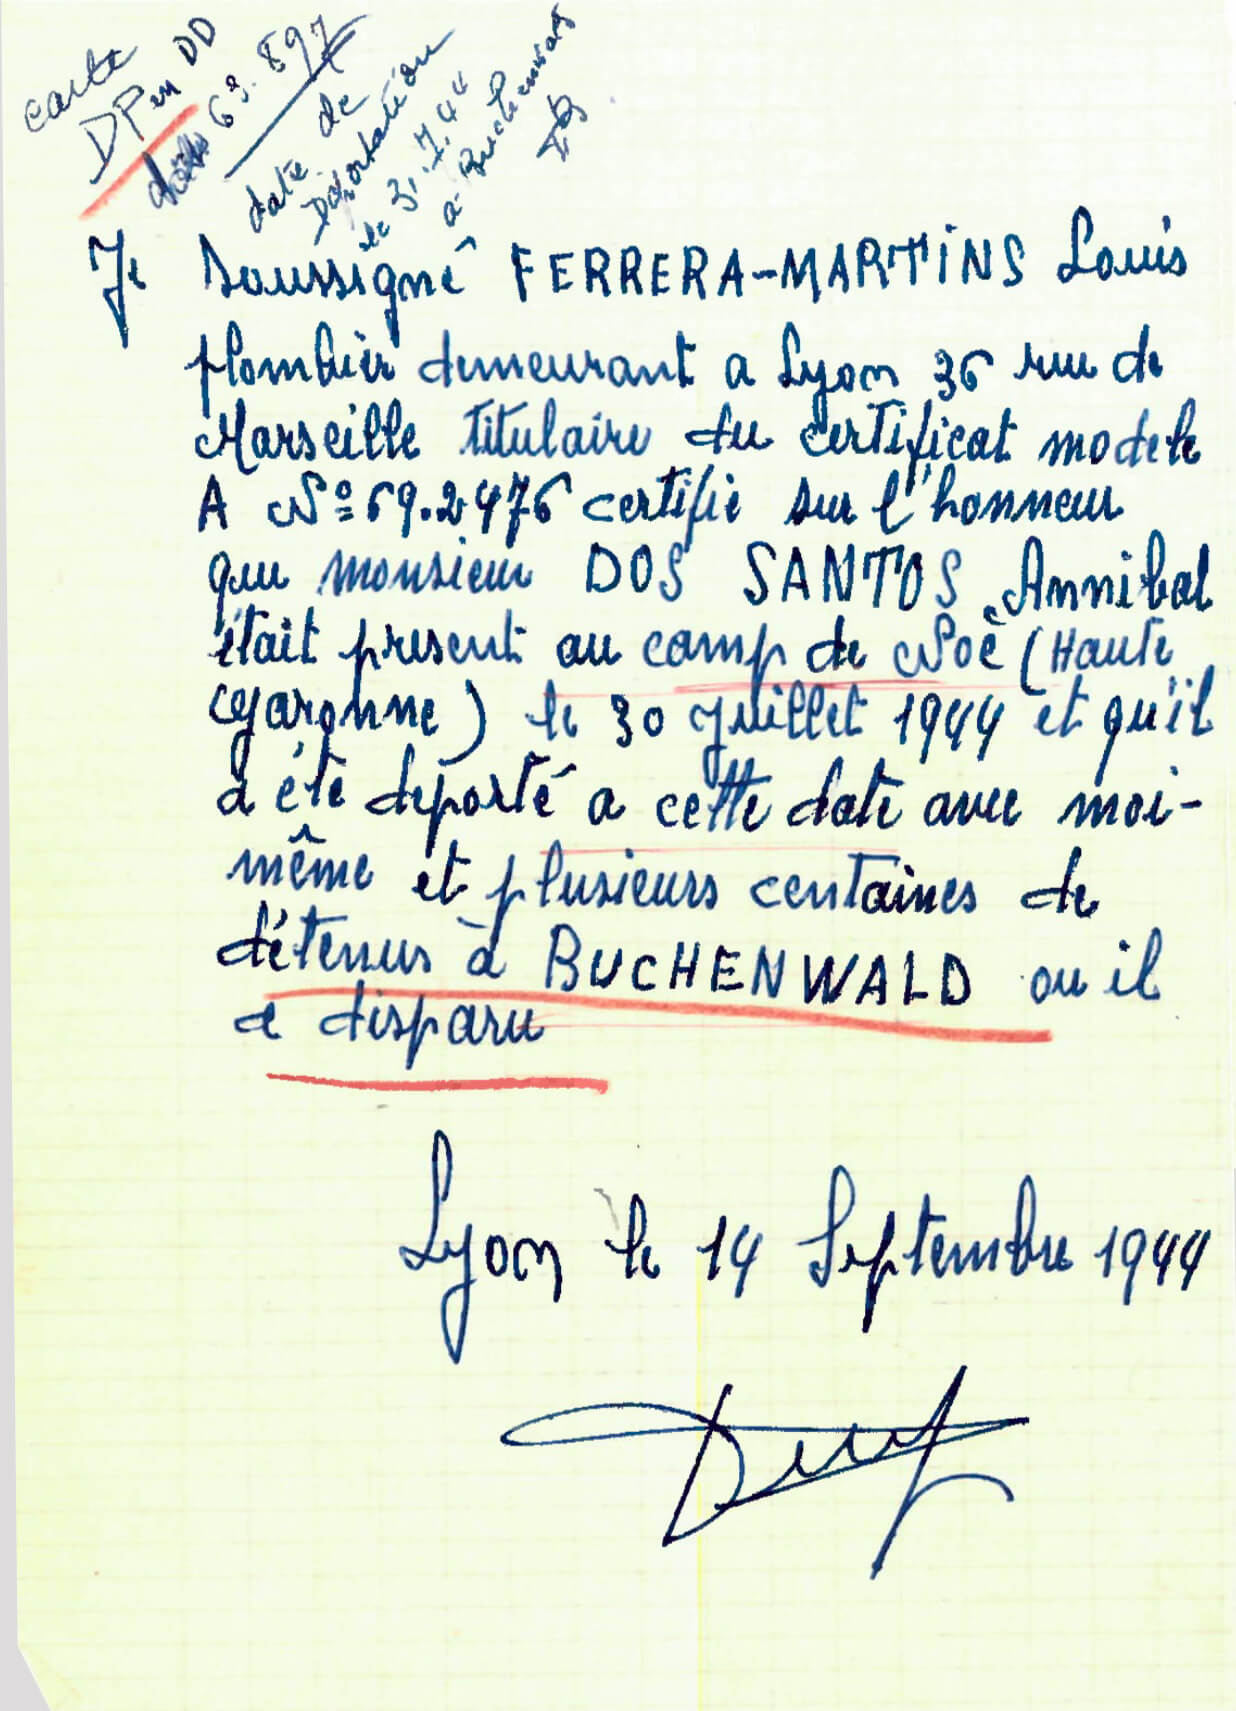 carte
DP en DD
63.897
date de
Déportation
le 31.7.44
a Buchenwald
Je soussigné FERRERA-MARTINS Louis
plombier demeurant a Lyon 36 rue de
Marseille titulaire du certificat modele
A N° 69.2476 certifie sur l'honneur
que monsieur DOS SANTOS Annibal
était present au camp de Noé (Haute
Garonne) le 30 Juillet 1944 et qu'il
a été déporté a cette date avec moi-
même et plusieurs centaines de
détenus à BUCHENWALD ou il
a disparu
Lyon le 14 Septembre 1944